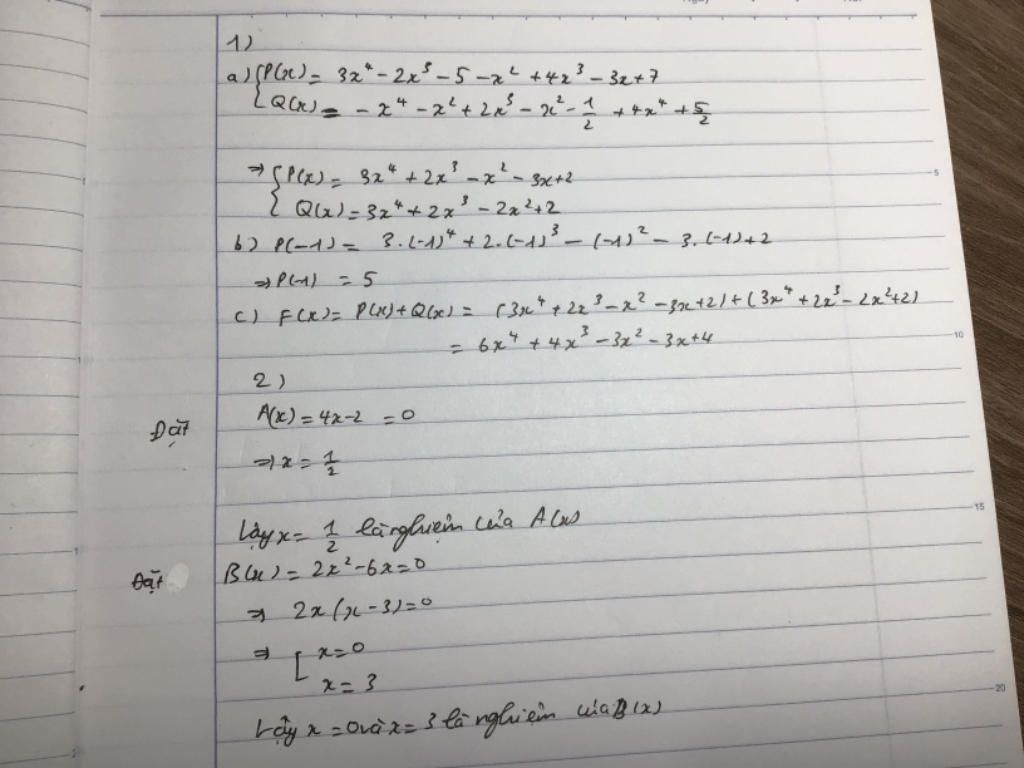 1)
a) { P(x) = 3x⁴ - 2x³ - 5 - x² + 4x³ - 3x + 7
Q(x) = - x⁴ - x² + 2x³ - x² - 1/2 + 4x⁴ + 5/2
⇒ { P(x) = 3x⁴ + 2x³ - x² - 3x + 2
Q(x) = 3x⁴ + 2x³ - 2x² + 2
b) P(-1) = 3.(-1)⁴ + 2.(-1)³ - (-1)² - 3.(-1) + 2
⇒ P(-1) = 5
c) F(x) = P(x) + Q(x) = (3x⁴ + 2x³ - x² - 3x + 2) + (3x⁴ + 2x³ - 2x² + 2)
= 6x⁴ + 4x³ - 3x² - 3x + 4
2)
Đặt A(x) = 4x - 2 = 0
⇒ x = 1/2
Vậy x = 1/2 là nghiệm của A(x)
Đặt B(x) = 2x² - 6x = 0
⇒ 2x(x - 3) = 0
⇒ [ x = 0
x = 3
Vậy x = 0 và x = 3 là nghiệm của B(x)
5
10
15
20